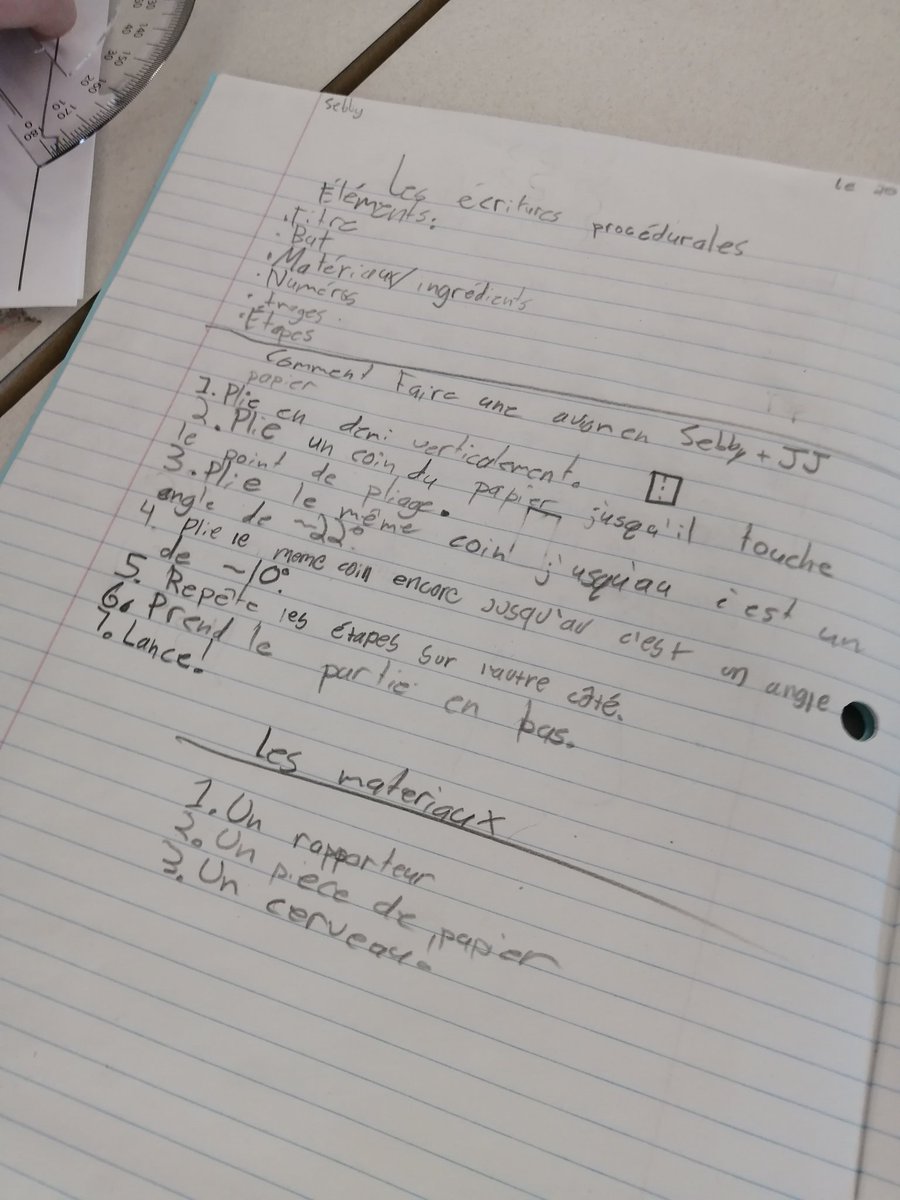 Sebby
le 20
Les écritures procédurales
Éléments:
• Titre
• But
• Matériaux/ingrédients
• Numéros
• Images
• Étapes
Comment Faire une avion en
papier
Sebby + JJ
1. Plie en demi verticalement.
2. Plie un coin du papier jusqu'il touche
le point de pliage.
3. Plie le même coin j'usqu'au c'est un
angle de ~22°
4. Plie le meme coin encore jusqu'au c'est un angle
de ~10°.
5. Repète les étapes sur l'autre côté.
6. Prend le partie en bas.
7. Lance!
Les materiaux
1. Un rapporteur
2. Un piece de papier
3. Un cerveau.
180
170
160
150
140
130
0
10
20
30
40